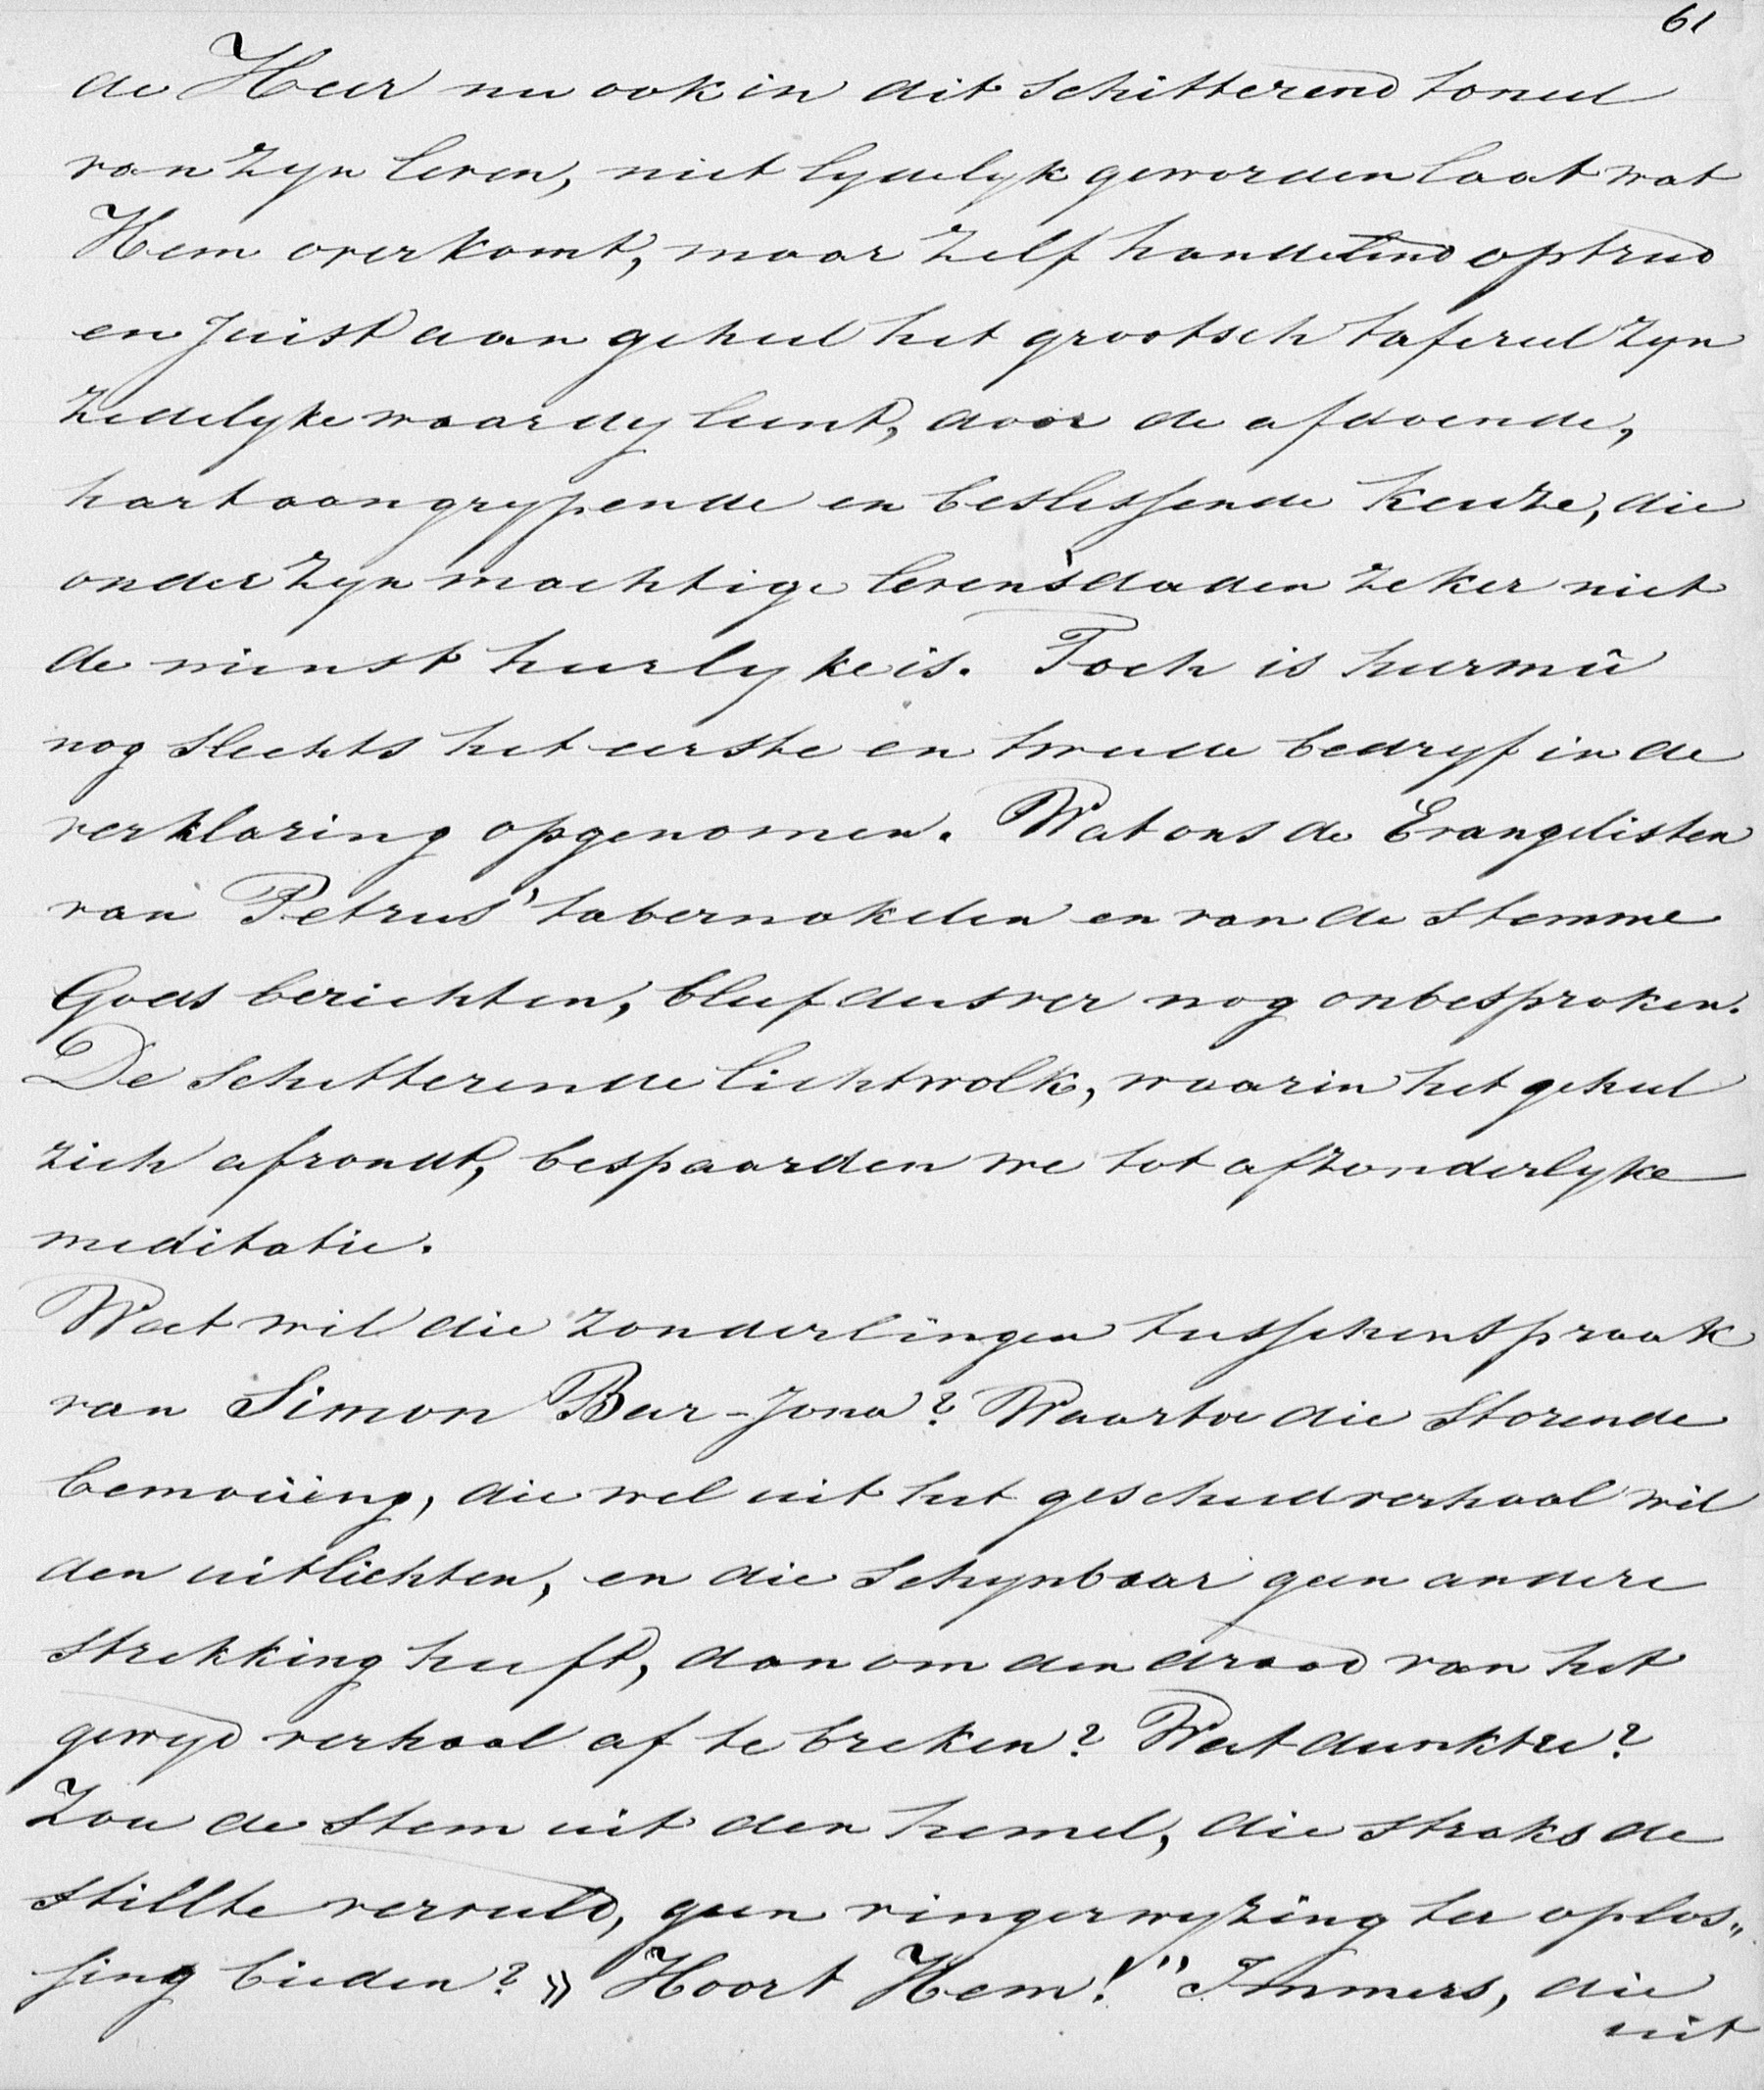 61
de Heer nu ook in dit schitterend toneel
van zyn leven, niet lydelyk geworden laat wat
Hem overkomt, maar zelf handelend optreed
en juist aan geheel het grootsch tafereel zyn
zedelyke waardy leent, door de afdoende,
hartaangrypende en beslissende keuze, die
onder zyn machtige levensdaden zeker niet
de minst heerlyke is. Toch is hiermeê
nog slechts het eerste en tweede bedryf in de
verklaring opgenomen. Wat ons de Evangelisten
van Petrus' tabernakelen en van de stemme
Gods berichten, bleef dusver nog onbesproken.
De schitterende lichtwolk, waarin het geheel
zich afrondt, bespaarden we tot afzonderlyke
meditatie.
Wat wil die zonderlingen tusschenspraak
van Simon Bar-Jona? Waartoe die storende
bemoeiing, die wel uit het geschiedverhaal wil
den uitlichten, en die schynbaar geen andere
strekking heeft, dan om den draad van het
gewyd verhaal af te breken? Wat dunkt u?
Zou de stem uit den hemel, die straks de
stillte vervuld, geen vingerwyzing ter oplos„
sing bieden? » Hoort Hem!" Immers, die
uit